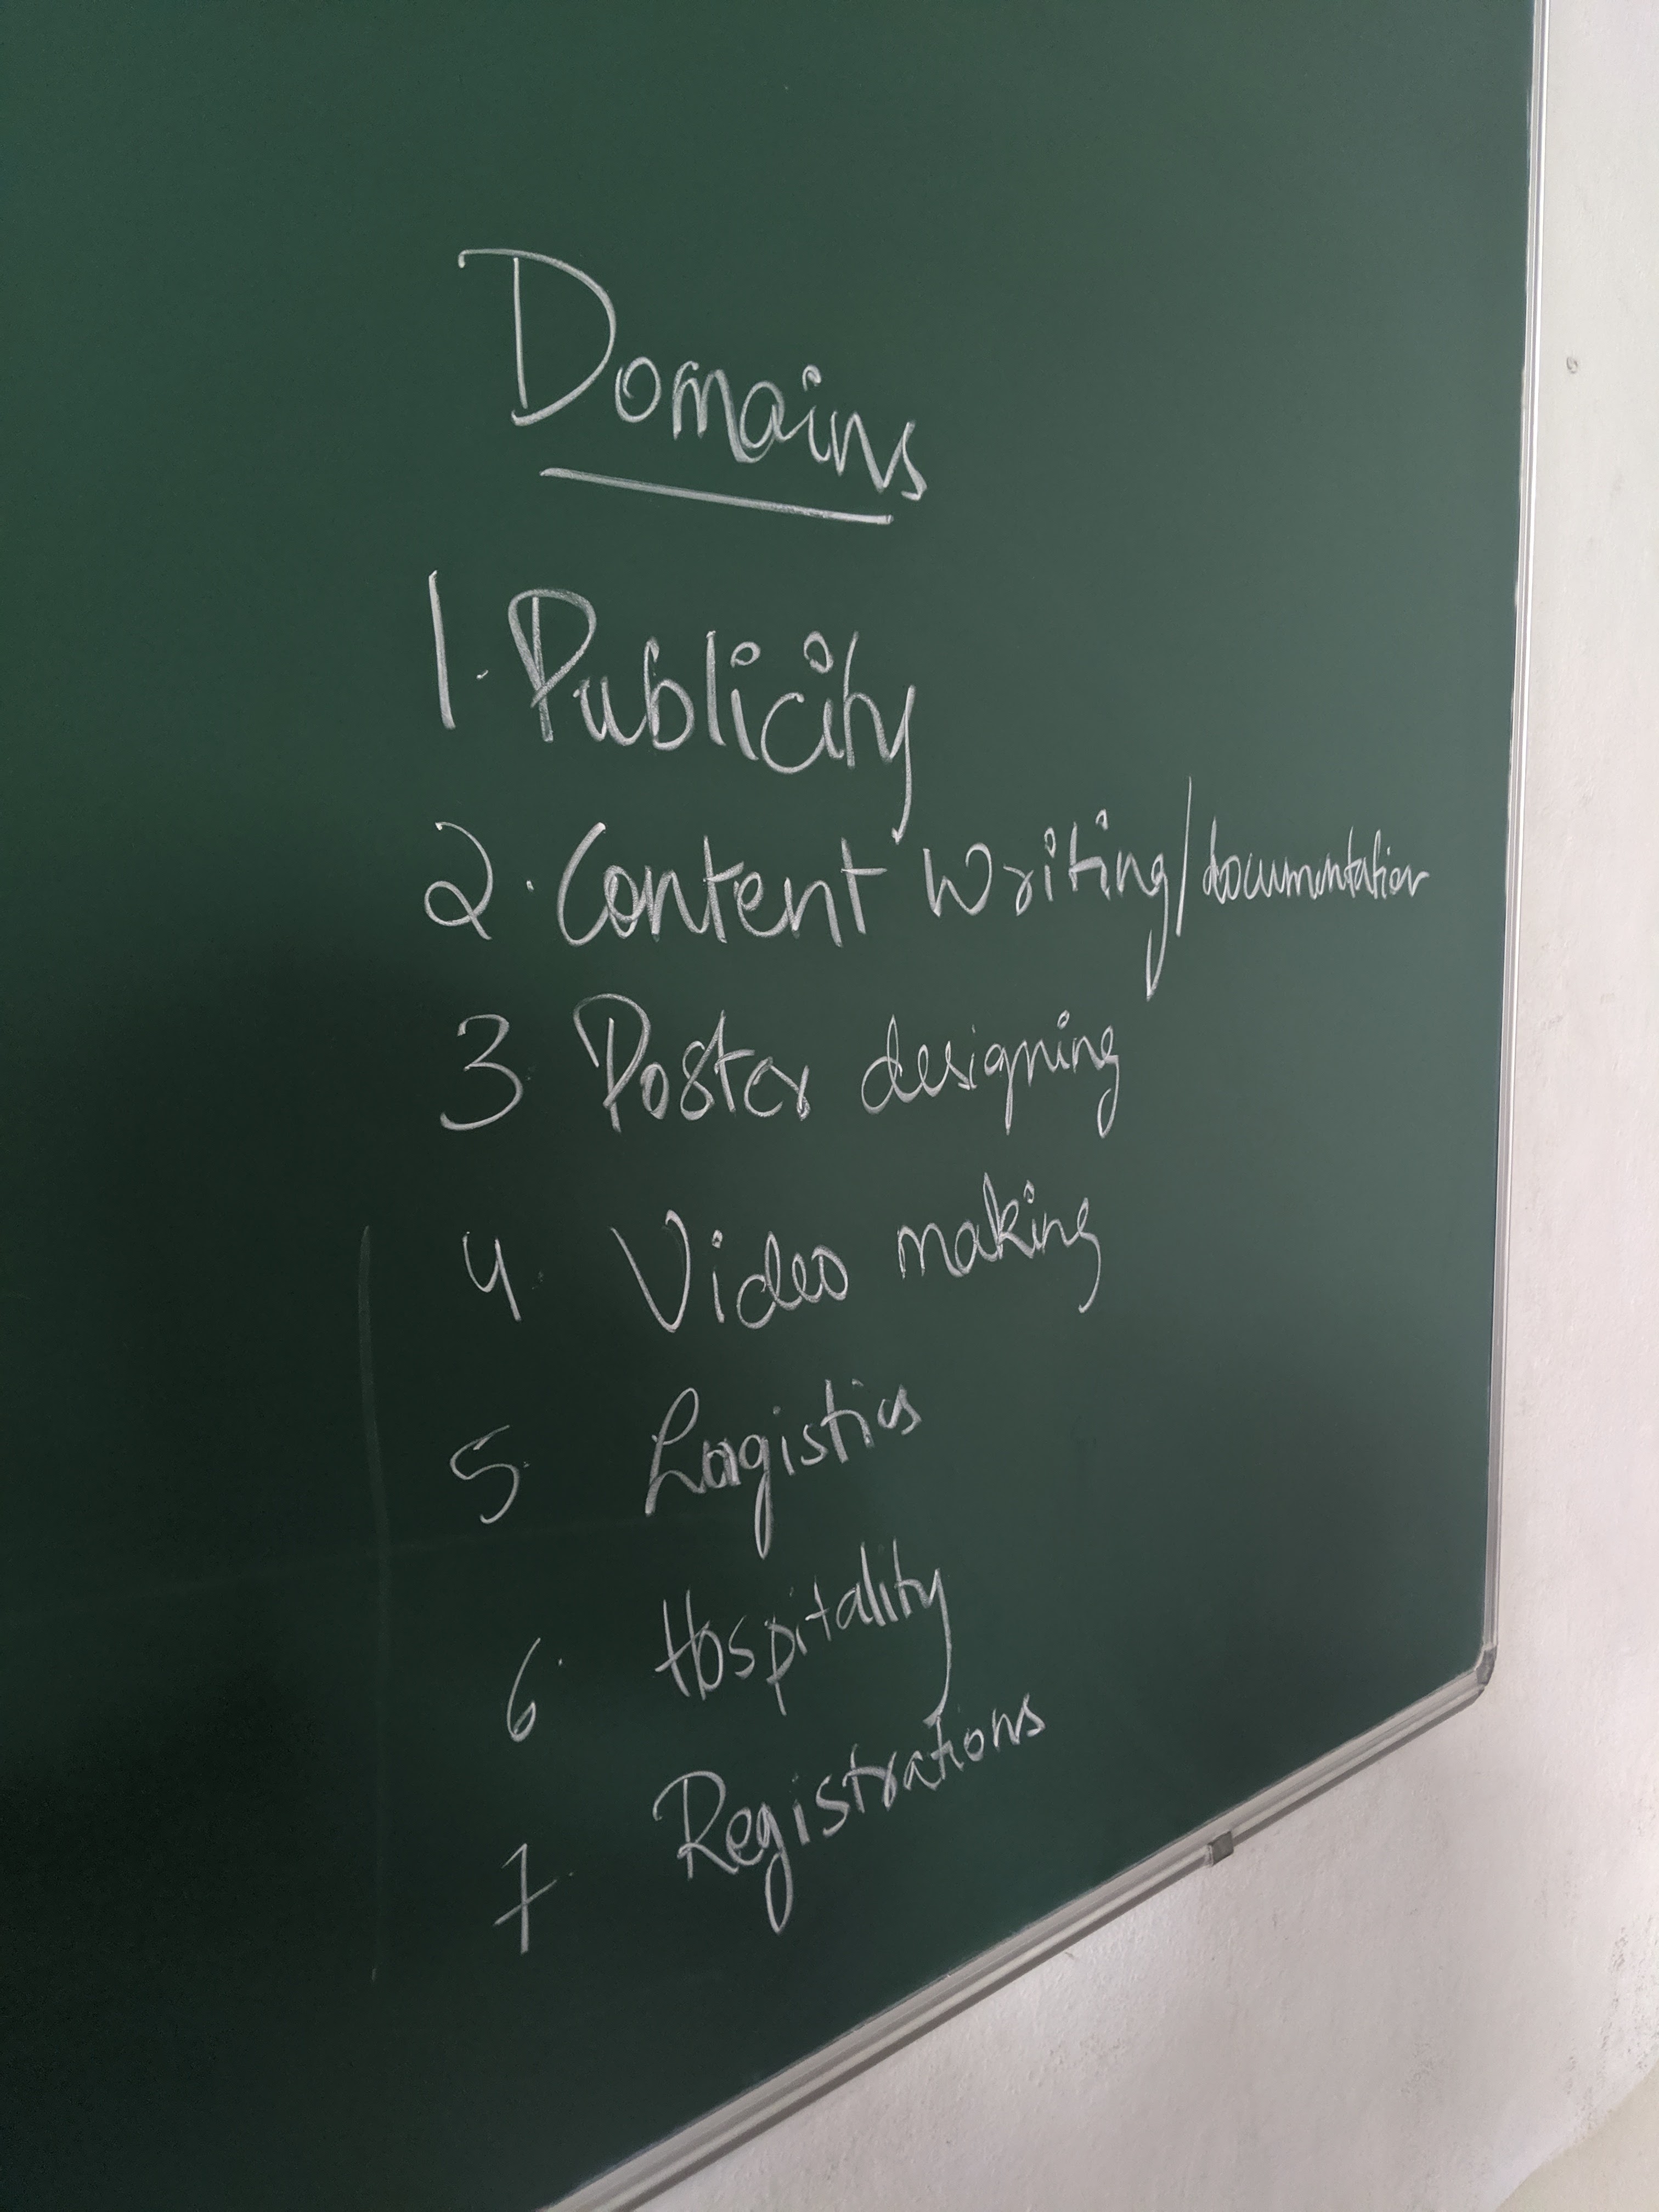 Domains
1. Publicity
2. Content Writing/documentation
3. Poster designing
4. Video making
5. Logistics
6. Hospitality
7. Registrations